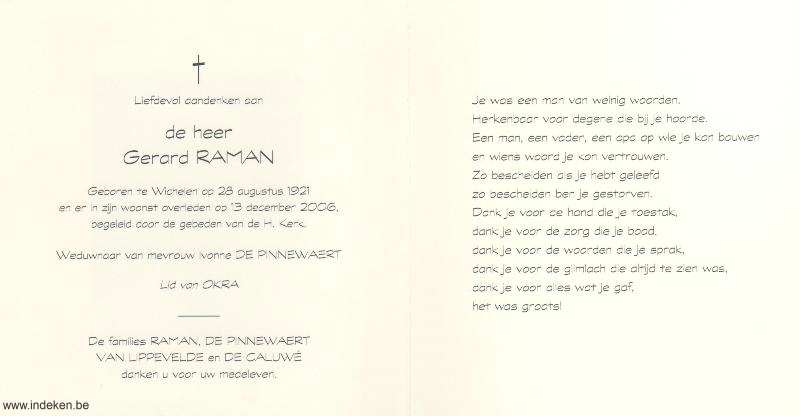 Liefdevol aandenken aan
de heer
Gerard RAMAN
Geboren te Wichelen op 28 augustus 1921
en er in zijn woonst overleden op 13 december 2006,
begeleid door de gebeden van de H. Kerk.
Weduwnaar van mevrouw Ivonne DE PINNEWAERT
Lid van OKRA
De families RAMAN, DE PINNEWAERT
VAN LIPPEVELDE en DE CALUWÉ
danken u voor uw medeleven.
Je was een man van weinig woorden.
Herkenbaar voor degene die bij je hoorde.
Een man, een vader, een opa op wie je kon bouwen
en wiens woord je kon vertrouwen.
Zo bescheiden als je hebt geleefd
zo bescheiden ben je gestorven.
Dank je voor de hand die je toestak,
dank je voor de zorg die je bood,
dank je voor de woorden die je sprak,
dank je voor de glimlach die altijd te zien was,
dank je voor alles wat je gaf,
het was groots!
www.indeken.be